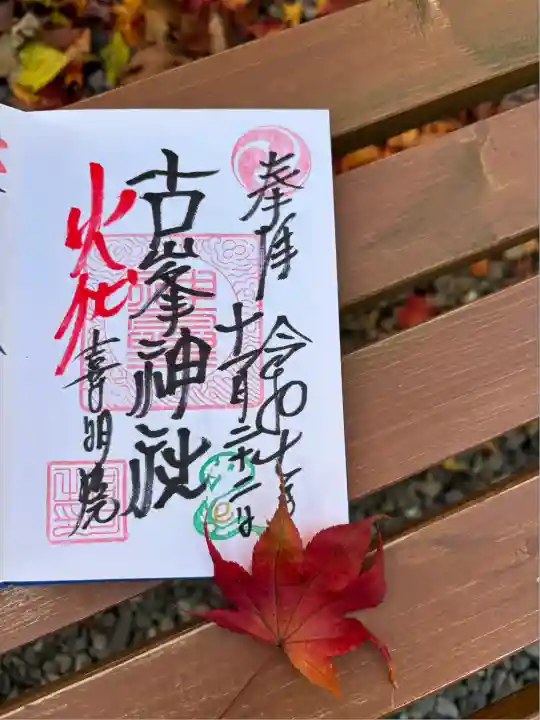 奉拝
令和七年
十一月二十二日
古峯神社
喜明